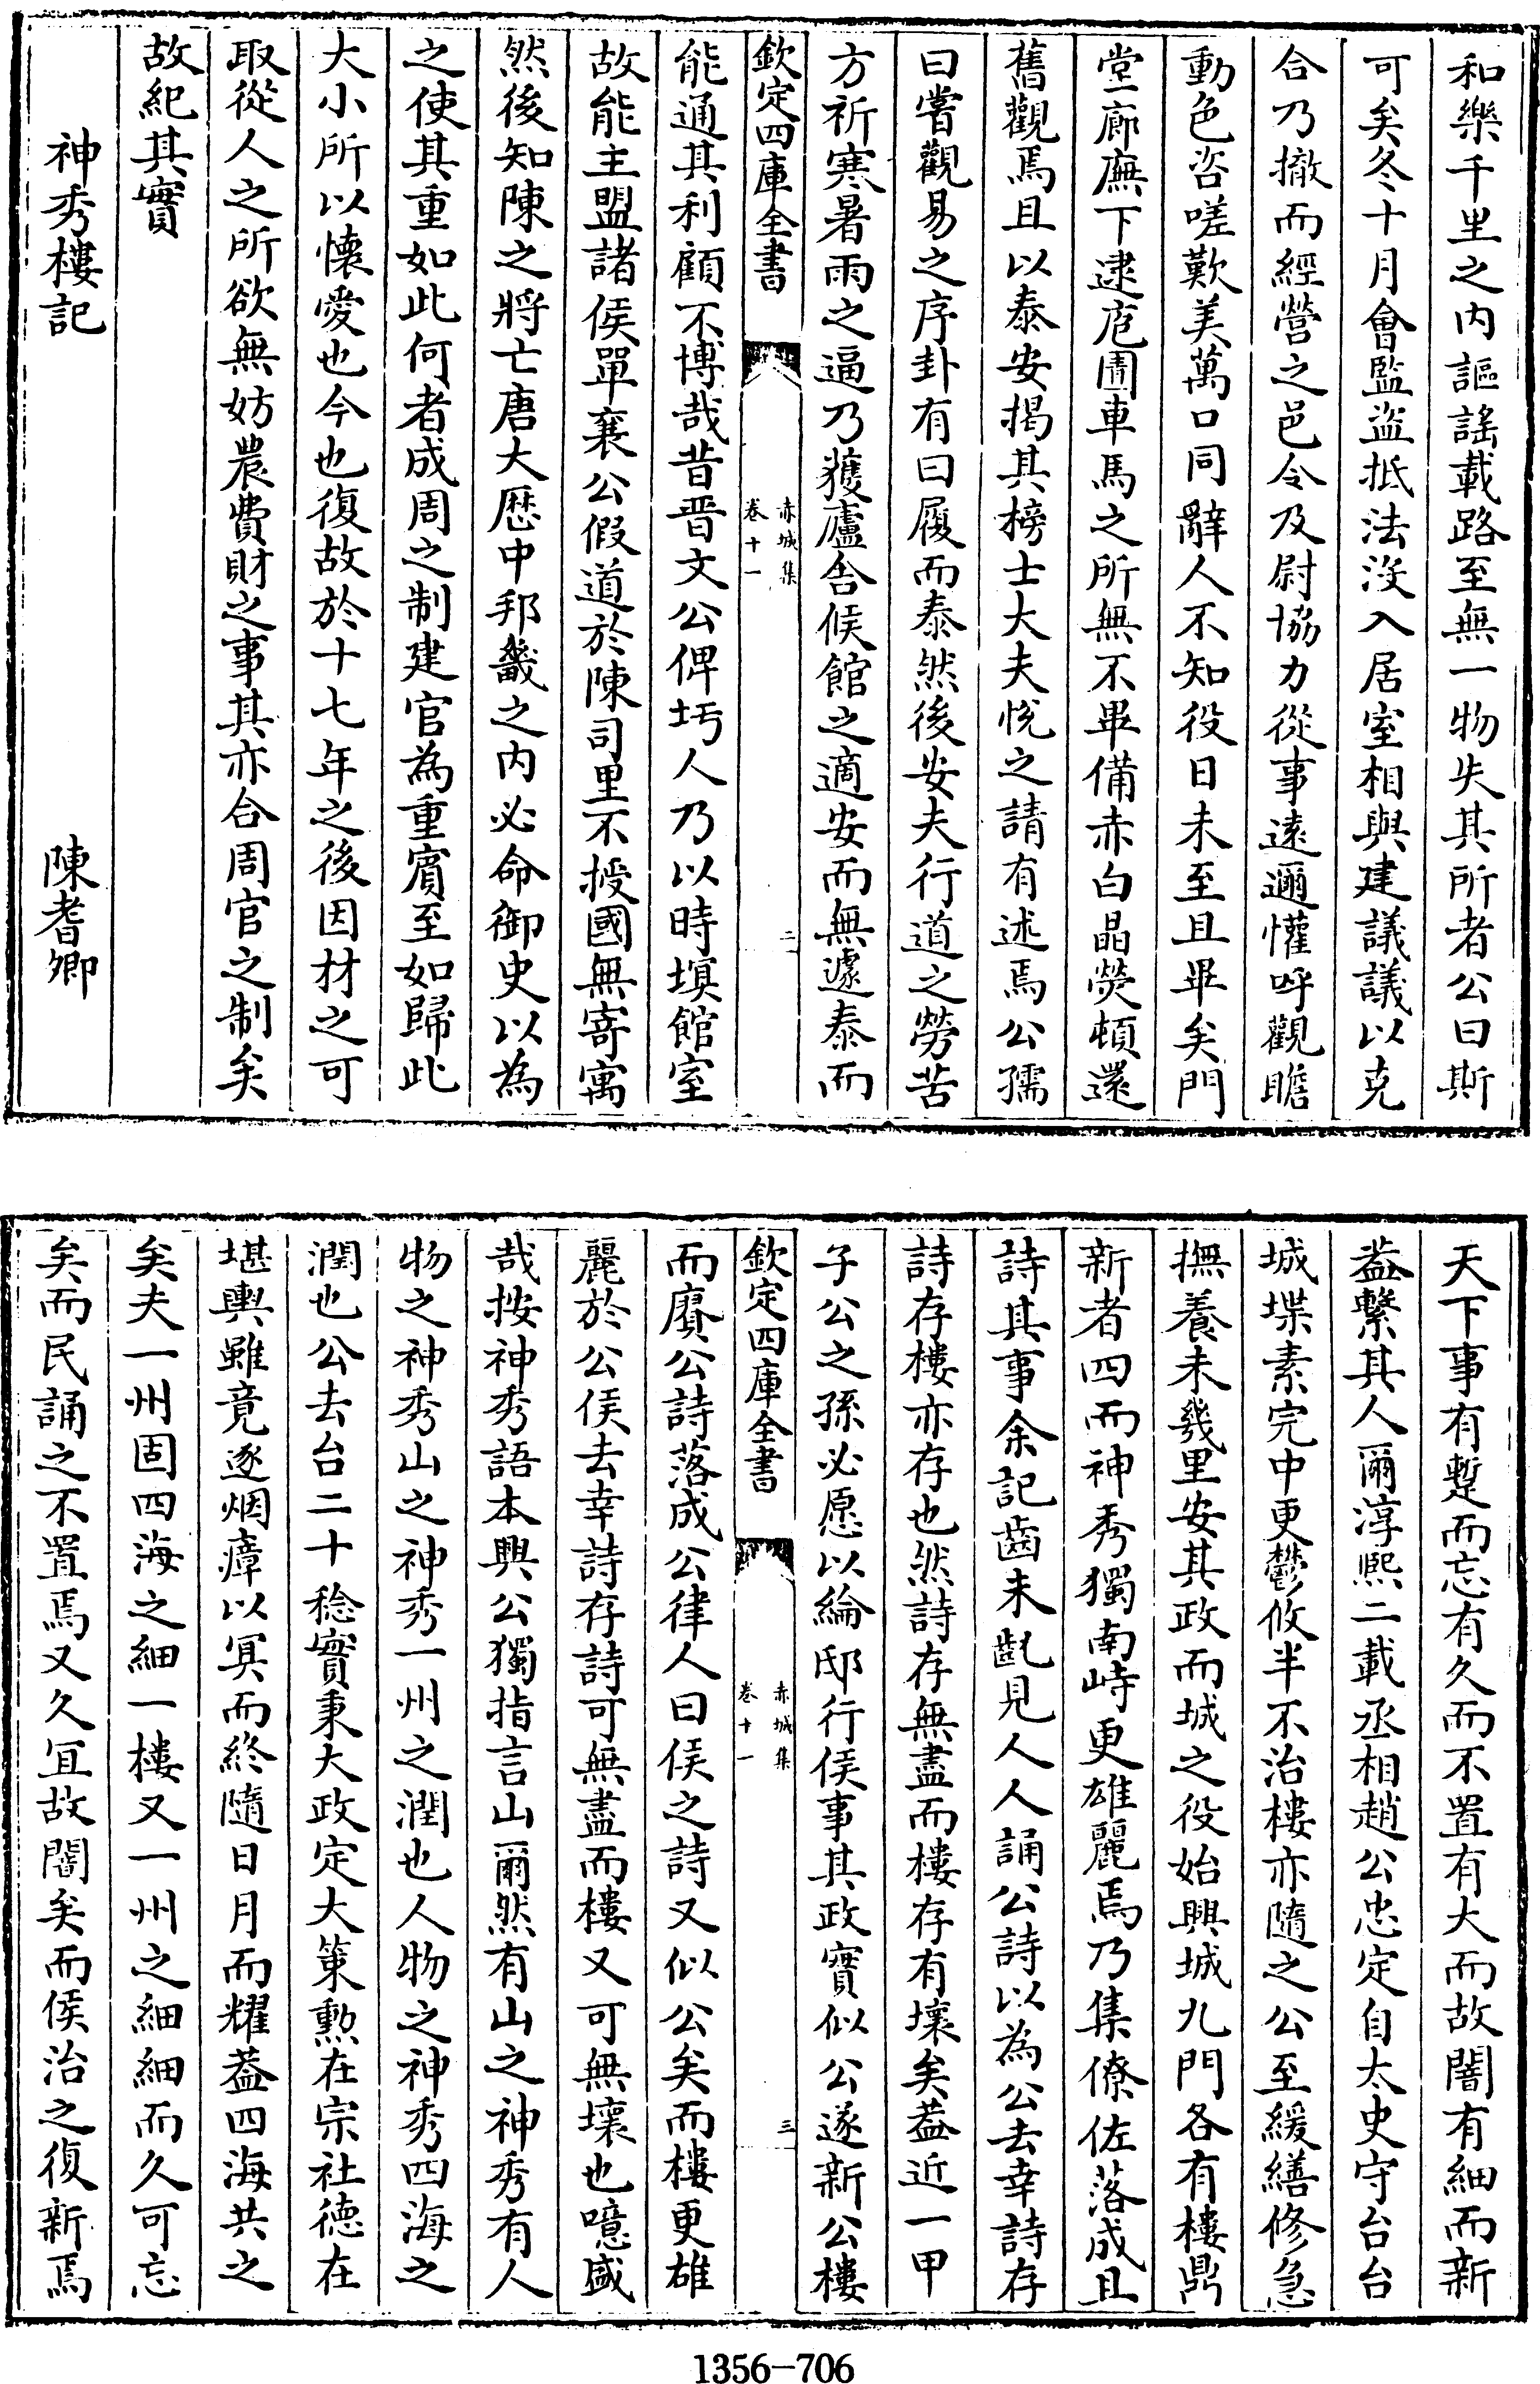 和樂千里之内謳謠載路至無一物失其所者公曰斯
可矣冬十月會監盗抵法没入居室相與建議議以克
合乃撤而經營之邑令及尉協力從事逺邇懽呼觀瞻
動色咨嗟歎美萬口同辭人不知役日未至且畢矣門
堂廊廡下逮庖圊車馬之所無不畢備赤白晶熒頓還
舊觀焉且以泰安揭其榜士大夫恱之請有述焉公孺
曰嘗觀易之序卦有曰履而泰然後安夫行道之勞苦
方祈寒暑雨之逼乃獲廬舍候館之適安而無遽泰而
欽定四庫全書
赤城集
卷十一
二
能通其利顧不博哉昔晋文公俾圬人乃以時塓館室
故能主盟諸侯單襄公假道於陳司里不授國無寄寓
然後知陳之將亡唐大歴中邦畿之内必命御史以為
之使其重如此何者成周之制建官為重賓至如歸此
大小所以懐愛也今也復故於十七年之後因材之可
取從人之所欲無妨農費財之事其亦合周官之制矣
故紀其實
神秀樓記
陳耆卿
天下事有蹔而忘有久而不置有大而故闇有細而新
葢繫其人爾淳熙二載丞相趙公忠定自太史守台台
城堞素完中更鬱攸半不治樓亦隨之公至緩繕修急
撫養未幾里安其政而城之役始興城九門各有樓鼎
新者四而神秀獨南峙更雄麗焉乃集僚佐落成且
詩其事余記齒未齔見人人誦公詩以為公去幸詩存
詩存樓亦存也然詩存無盡而樓存有壞矣葢近一甲
子公之孫必愿以綸邸行侯事其政實似公遂新公樓
欽定四庫全書
赤城集
卷十一
三
而賡公詩落成公律人曰侯之詩又似公矣而樓更雄
麗於公侯去幸詩存詩可無盡而樓又可無壞也噫盛
哉按神秀語本興公獨指言山爾然有山之神秀有人
物之神秀山之神秀一州之潤也人物之神秀四海之
潤也公去台二十稔實秉大政定大策勲在宗社徳在
堪輿雖竟逐烟瘴以冥而終隨日月而耀葢四海共之
矣夫一州固四海之細一樓又一州之細細而久可忘
矣而民誦之不置焉又久宜故闇矣而侯治之復新焉
1356-706